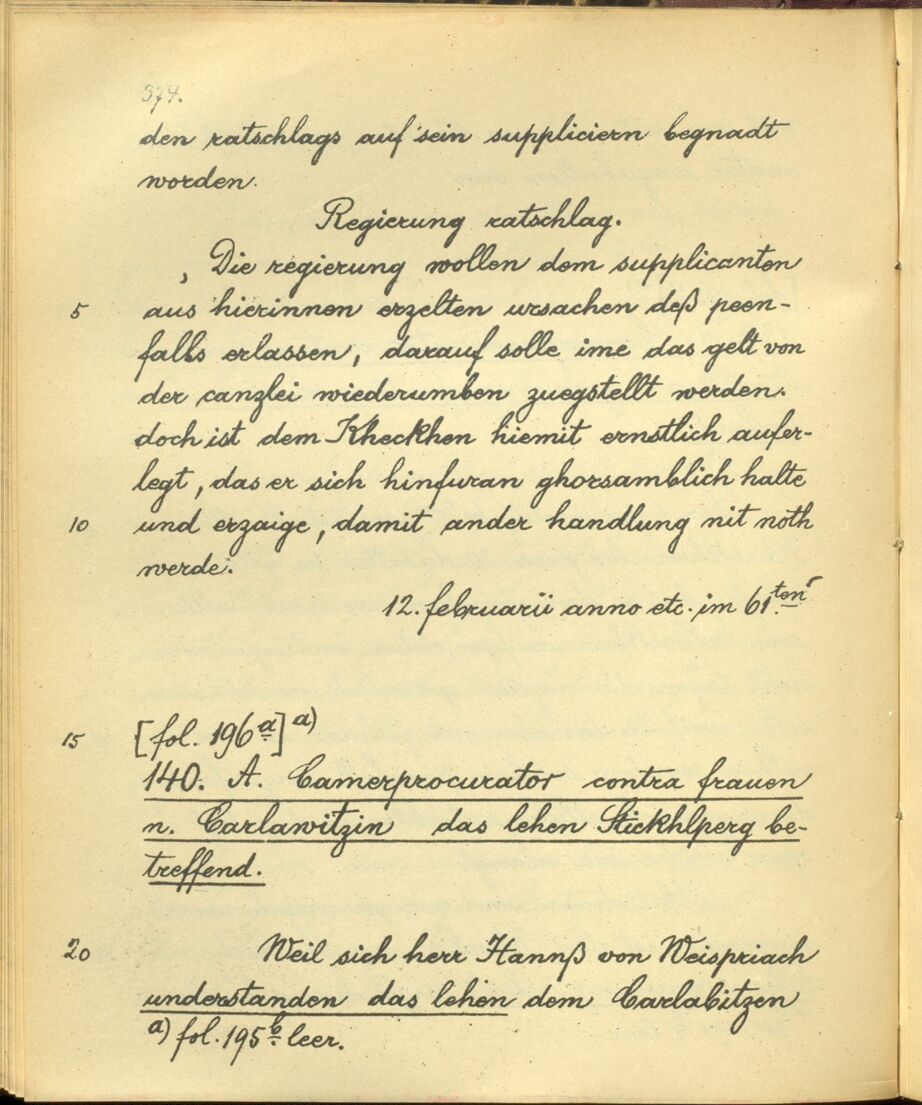 374.
den ratschlags auf sein suppliciern begnadt
worden.
Regierung ratschlag.
Die regierung wollen dem supplicanten
5 aus hierinnen erzelten ursachen deß peen-
falls erlassen, darauf solle ime das gelt von
der canzlei wiederumben zuegstellt werden.
doch ist dem Kheckhen hiemit ernstlich aufer-
legt, das er sich hinfuran ghorsamblich halte
10 und erzaige, damit ander handlung nit noth
werde.
12. februarii anno etc. im 61ten
15 [fol. 196a] a)
140. A. Camerprocurator contra frauen
n. Carlawitzin das lehen Stickhlperg be-
treffend.
20 Weil sich herr Hannß von Weispriach
understanden das lehen dem Carlabitzen
a) fol. 195b leer.